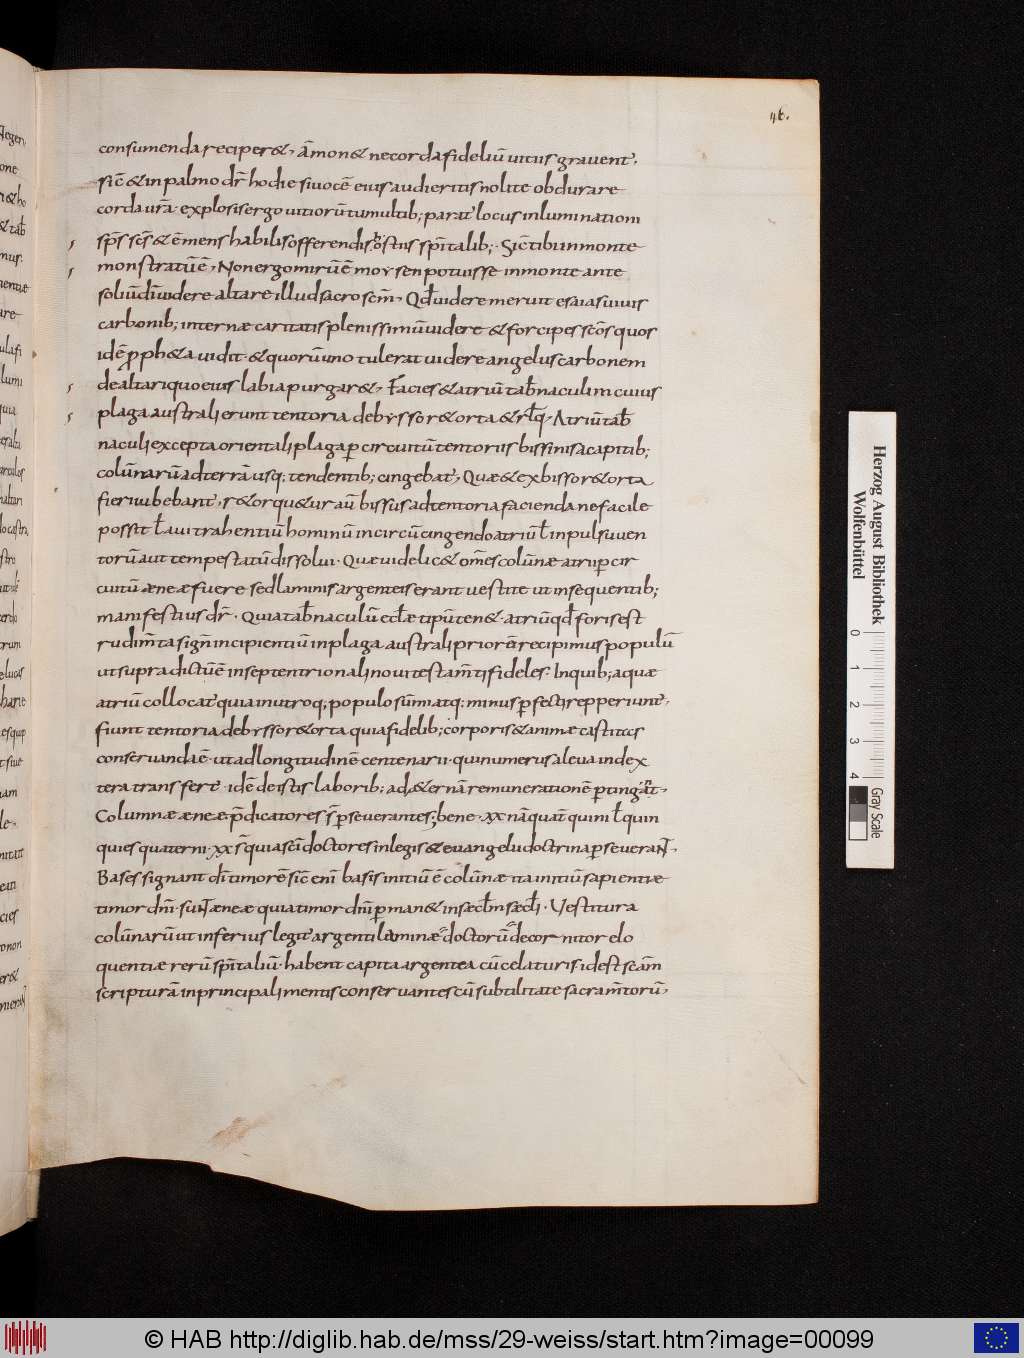 46.
consumenda reciper&, āmon& ne corda fideliū uitiis grauent,
sic̄ & in palmo dr̄ hodie si uocē eius audieritis nolite obdurare
corda ur̄a· explosis ergo uitiorū tumultib; parat̄ locus inluminationi
sp̄s sc̄s & ē mens habilis offerendis ostiis sp̄italib;· Sic̄ tibi in monte
monstratū ē, Non ergo mirū ē moysen potuisse in monte ante
soliū dī uidere altare illud sacrosc̄m̄, Qd̄ uidere meruit esaias uiuis
carbonib; internæ caritatis plenissimū uidere & forcipes sc̄os quos
idē pph&a uidit· & quorū uno tulerat uidere angelus carbonem
de altari quo eius labia purgar&, Facies & atriū tab̄naculi in cuius
plaga australi erunt tentoria de bysso r&orta & rl̄q, Atriū tab̄
naculi excepta orientali plaga p circuitū tentoriis bissinis a capitib;
colūnarū ad terrā usq; tendentib; cingebat̄, Quæ & ex bisso r&orta
fieri iubebant̄, r&orqu&ur aū bissus ad tentoria facienda ne facile
possit ł aui trahentiū hominū in circū cingendo atriū ł inpulsu uen
torū aut tempestatū dissolui· Quæ uidelic& om̄s colūnæ atrii p cir
cuitū æneæ fuere sed laminis argenteis erant uestite ut in sequentib;
manifestius dr̄· Quia tab̄naculū eccl̄æ tipū ten&· atriū qd̄ foris est
rudim̄ta sign̄ incipientiū in plaga australi priorē recipimus populū
ut supra dictū ē in septentrionali noui testam̄ti fideles· In quib; aquæ
atriū collocat̄ quia in utroq; populo sūmi atq; minus pfecti repperiunt̄·
fiunt tentoria de bysso r&orta quia fidelib; corporis & animæ castitas
conseruanda ē· ut ad longitudinē centenarii· qui numerus a leua in dex
tera transfert̄· idē de istis laborib; ad &ernā remunerationē ptingat̄,
Columnæ æneæ p̄dicatores s̄ pseuerantes; bene· xx nā quat̄ quini ł quin
quies quaterni· xx s̄ quia sc̄i doctores in legis & euangelii doctrina pseuerant,
Bases signant dn̄i timorē sic̄ enī basis initiū ē colūnæ ita initiū sapientiæ
timor dn̄i· sunt æneæ quia timor dn̄i pman& in sæcl̄m sæcl̄i· Vestitura
colūnarū ut inferius legit̄ argenti laminæ doctorū decor nitor elo
quentiæ rerū sp̄italiū· habent capita argentea cū celaturis id est scām
scripturā in principali mentis conseruantes cū subtilitate sacram̄torū,
Herzog August Bibliothek
Wolfenbüttel
0 1 2 3 4
Gray Scale
© HAB http://diglib.hab.de/mss/29-weiss/start.htm?image=00099